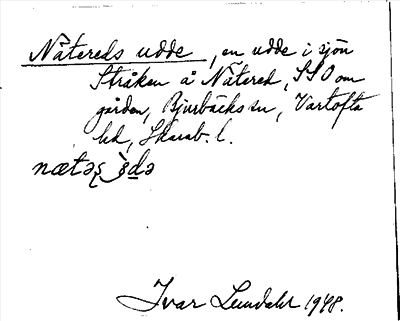 Nätereds udde, en udde i sjön
Stråken å Nätered, SSO om
gården, Bjurbäcks sn, Vartofta
hd, Skarab. l.
nætəʂ
Ivar Lundahl 1948.